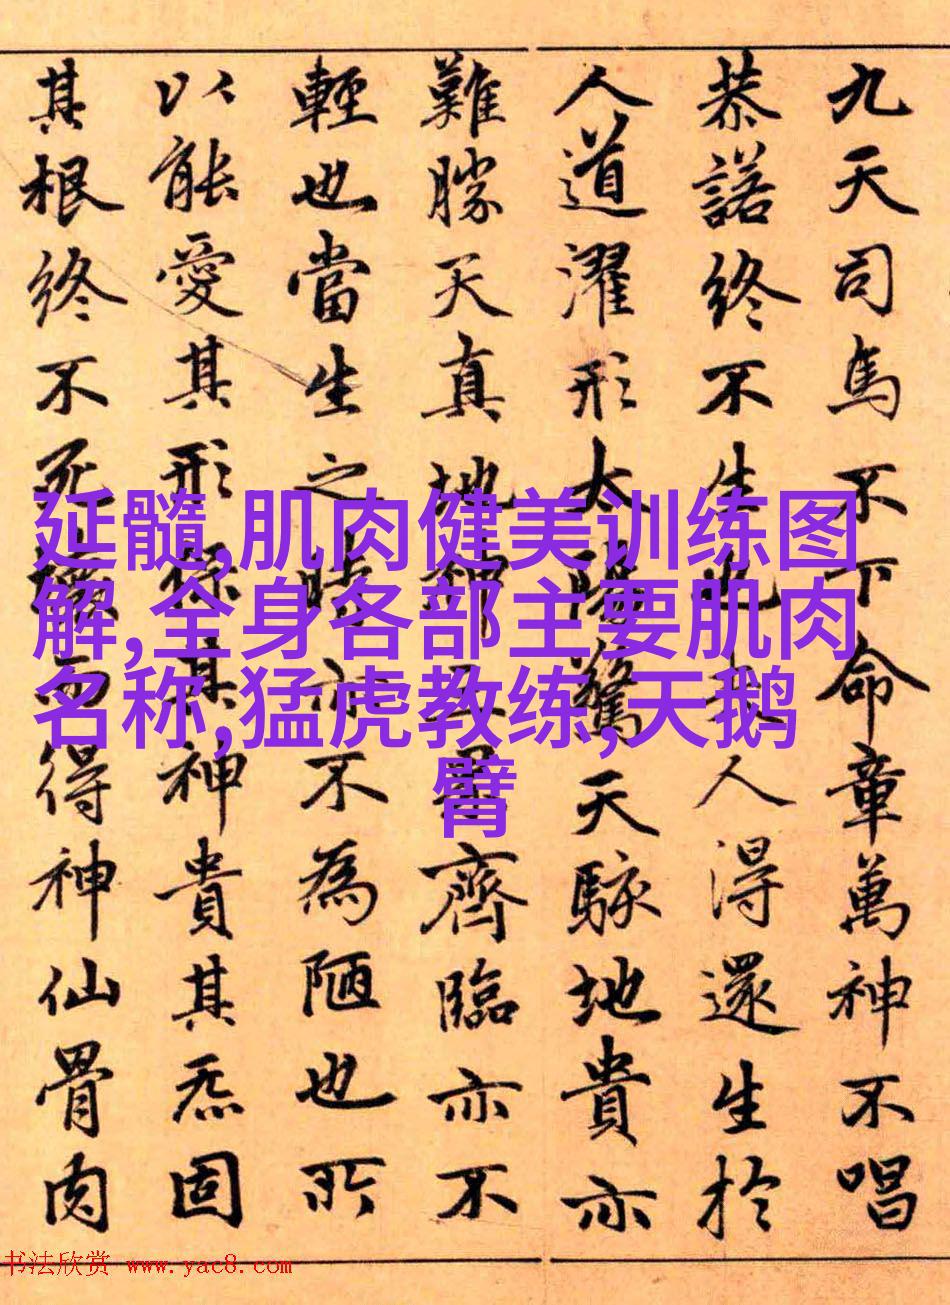 九天司馬不下命章萬神不唱
恭諾終不生也夫人得還生於
人道濯形太陽驚天駭地貴亦
難勝天真地神景齊臨亦不
輕也當生之時亦不為陋也所
以能愛其形保其神貴其炁固
其根終不死壞而得神仙骨肉
延髓,肌肉健美训练图
解,全身各部主要肌肉
名称,猛虎教练,天鹅
臂
书法欣赏 www.yac8.com